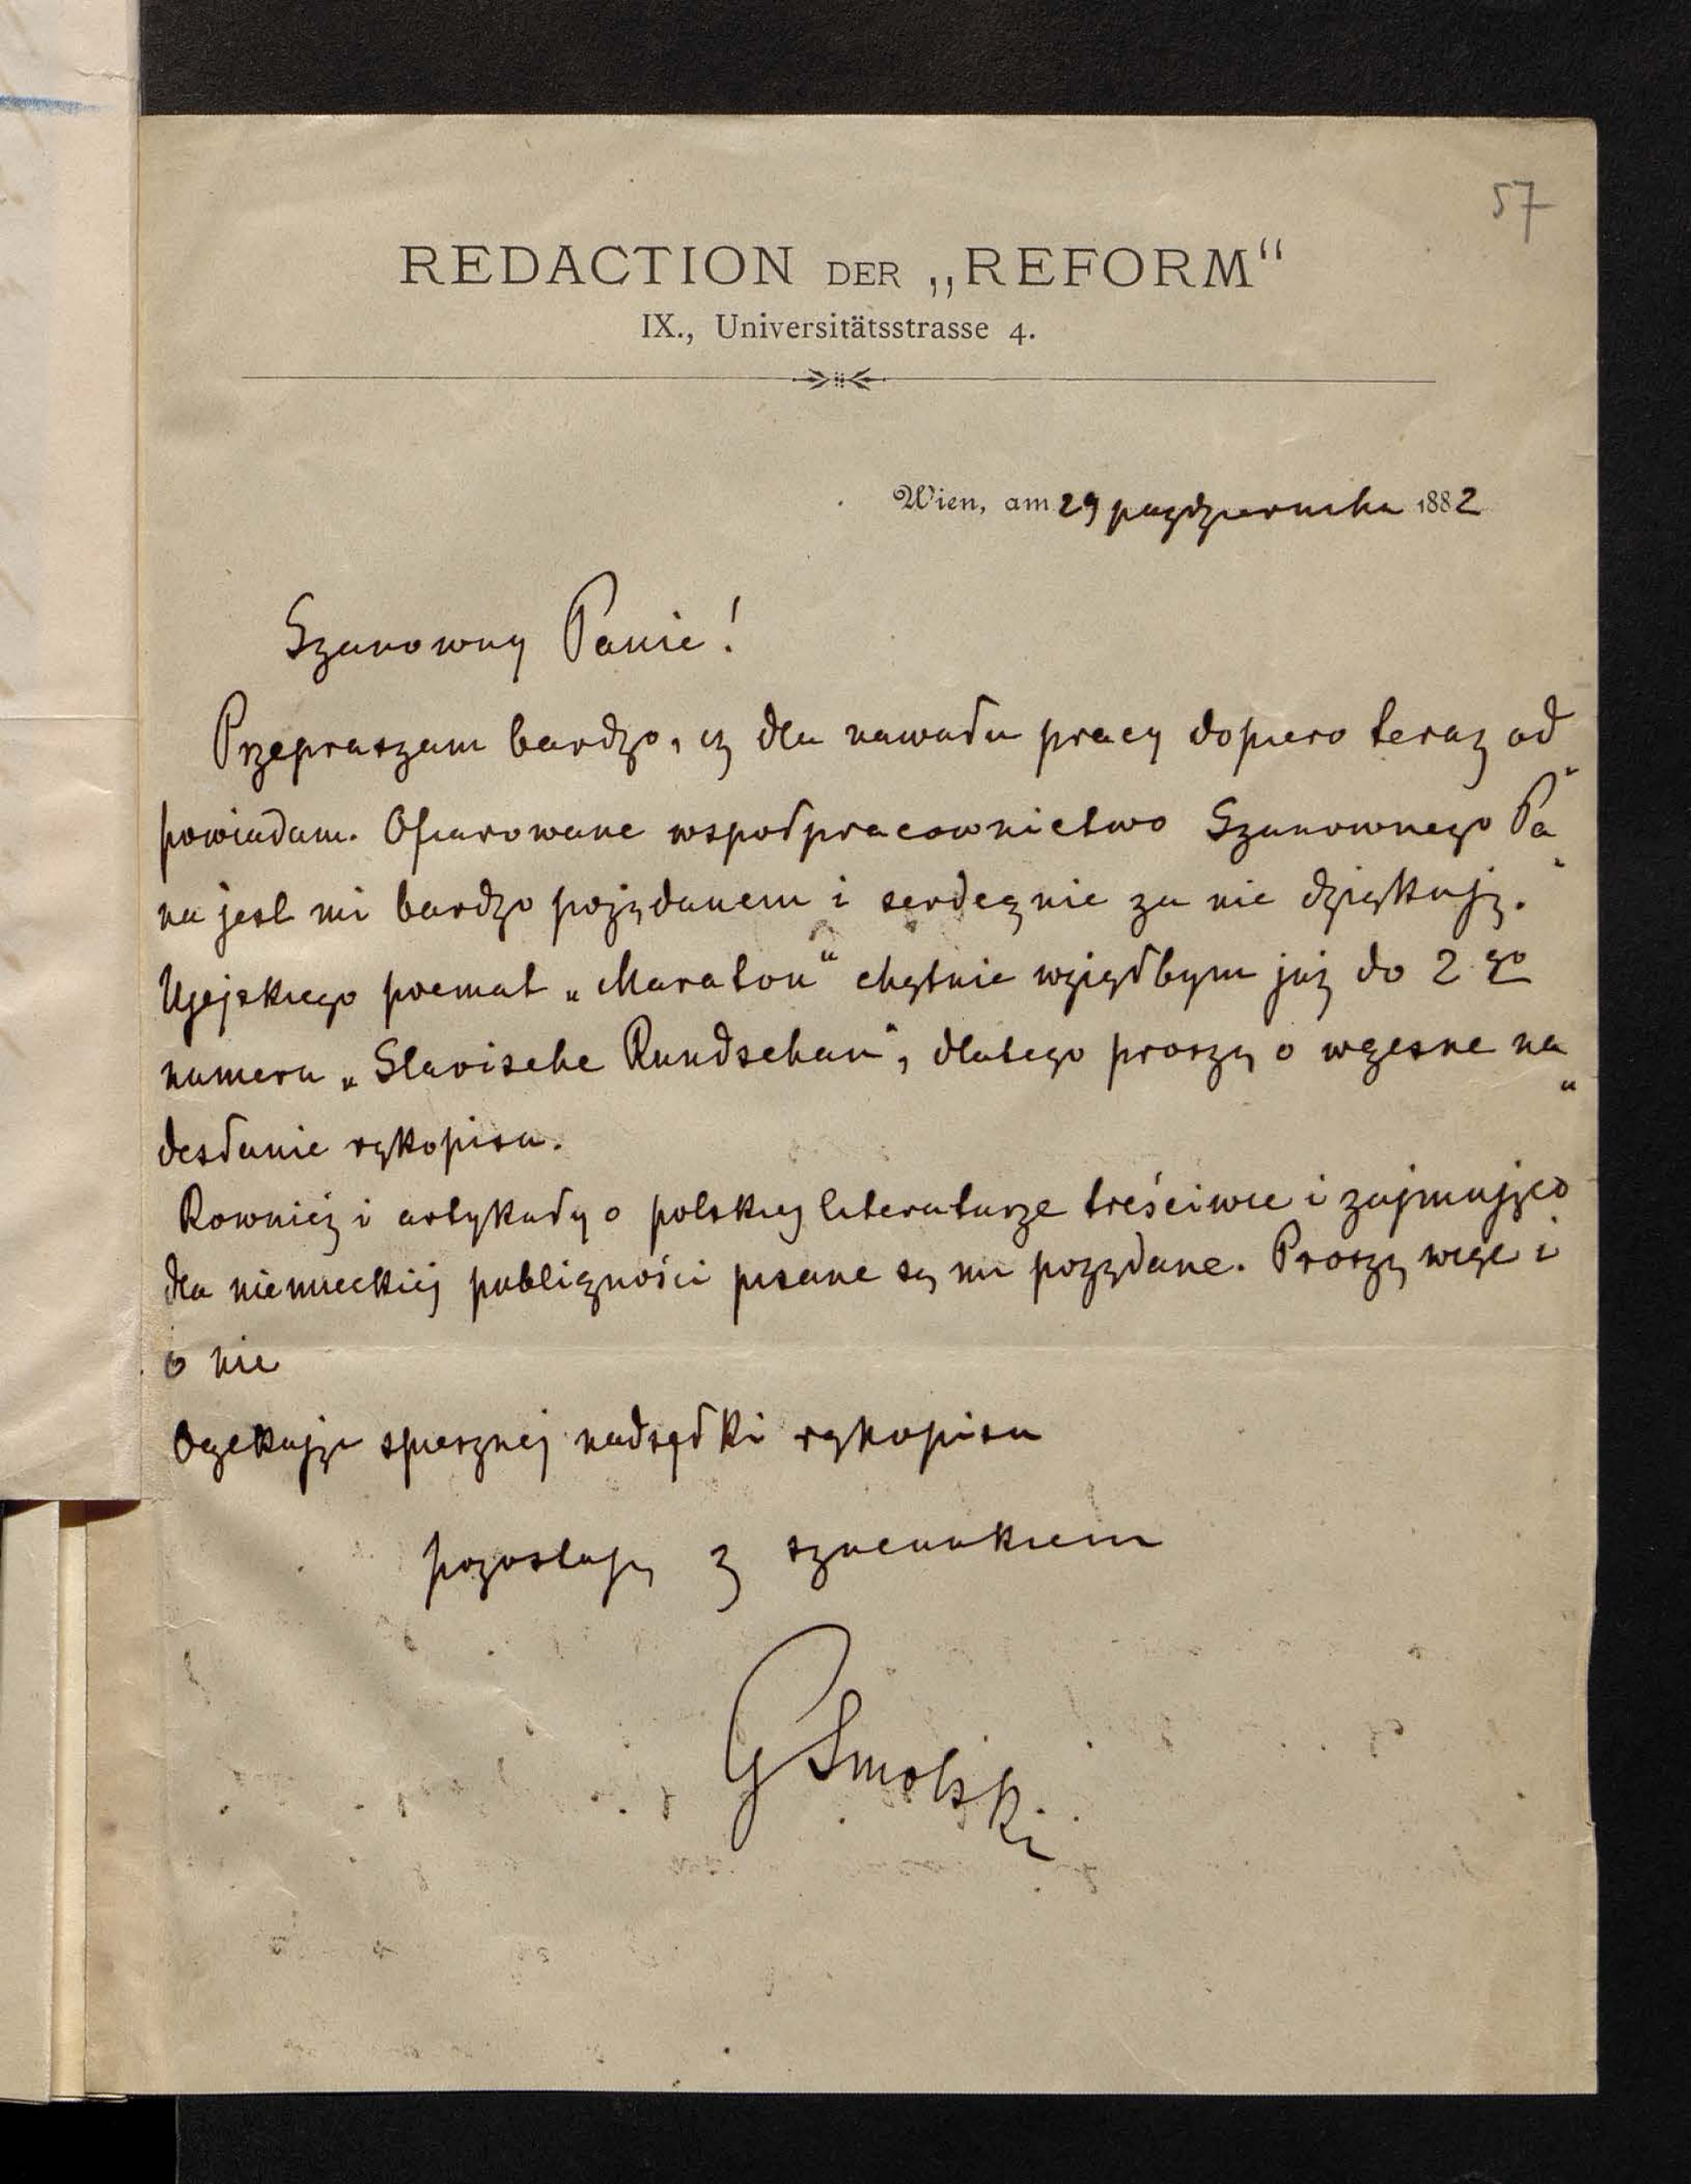 57
REDACTION DER „REFORM“
IX., Universitätsstrasse 4.
Wien, am 29 października 1882
Szanowny Panie!
Przepraszam bardzo, iż dla nawału pracy dopiero teraz od„
powiadam. Ofiarowane wspołpracownictwo Szanownego Pa„
na jest mi bardzo pożądanem i serdecznie za nie dziękuję.
Ujejskiego poemat „Maraton“ chętnie wziąłbym już do 2 go
numeru „Slavische Rundschau“, dlatego proszę o wczesne na„
desłanie rękopisu.
Rownież i artykuły o polskiej literaturze treściwie i zajmująco
dla niemieckiej publiczności pisane są mi pożądane. Proszę więc i
o nie
Oczekując spiesznej nadsyłki rękopisu
pozostaję z szacunkiem
GSmolski